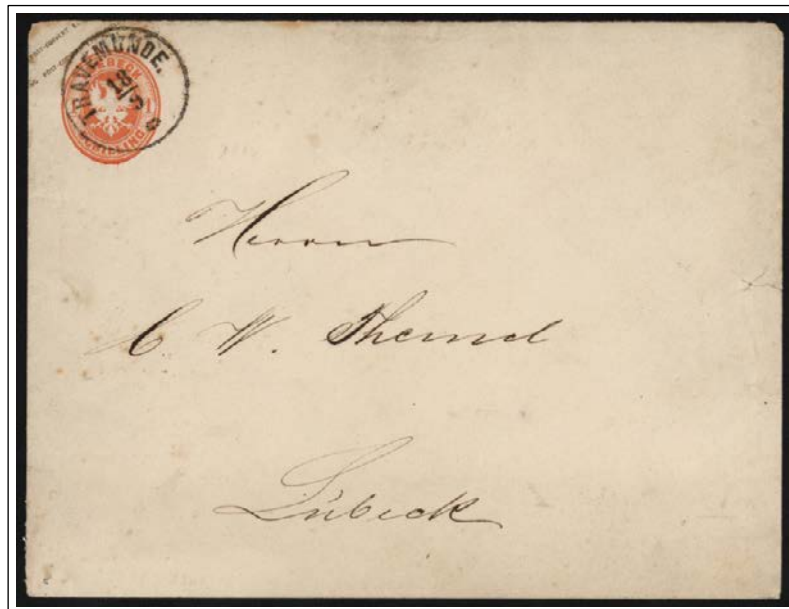 TRAVEMÜNDE.
18/3
LÜBECK
1
SCHILLING
Herrn
C. W. Themel
Lübeck